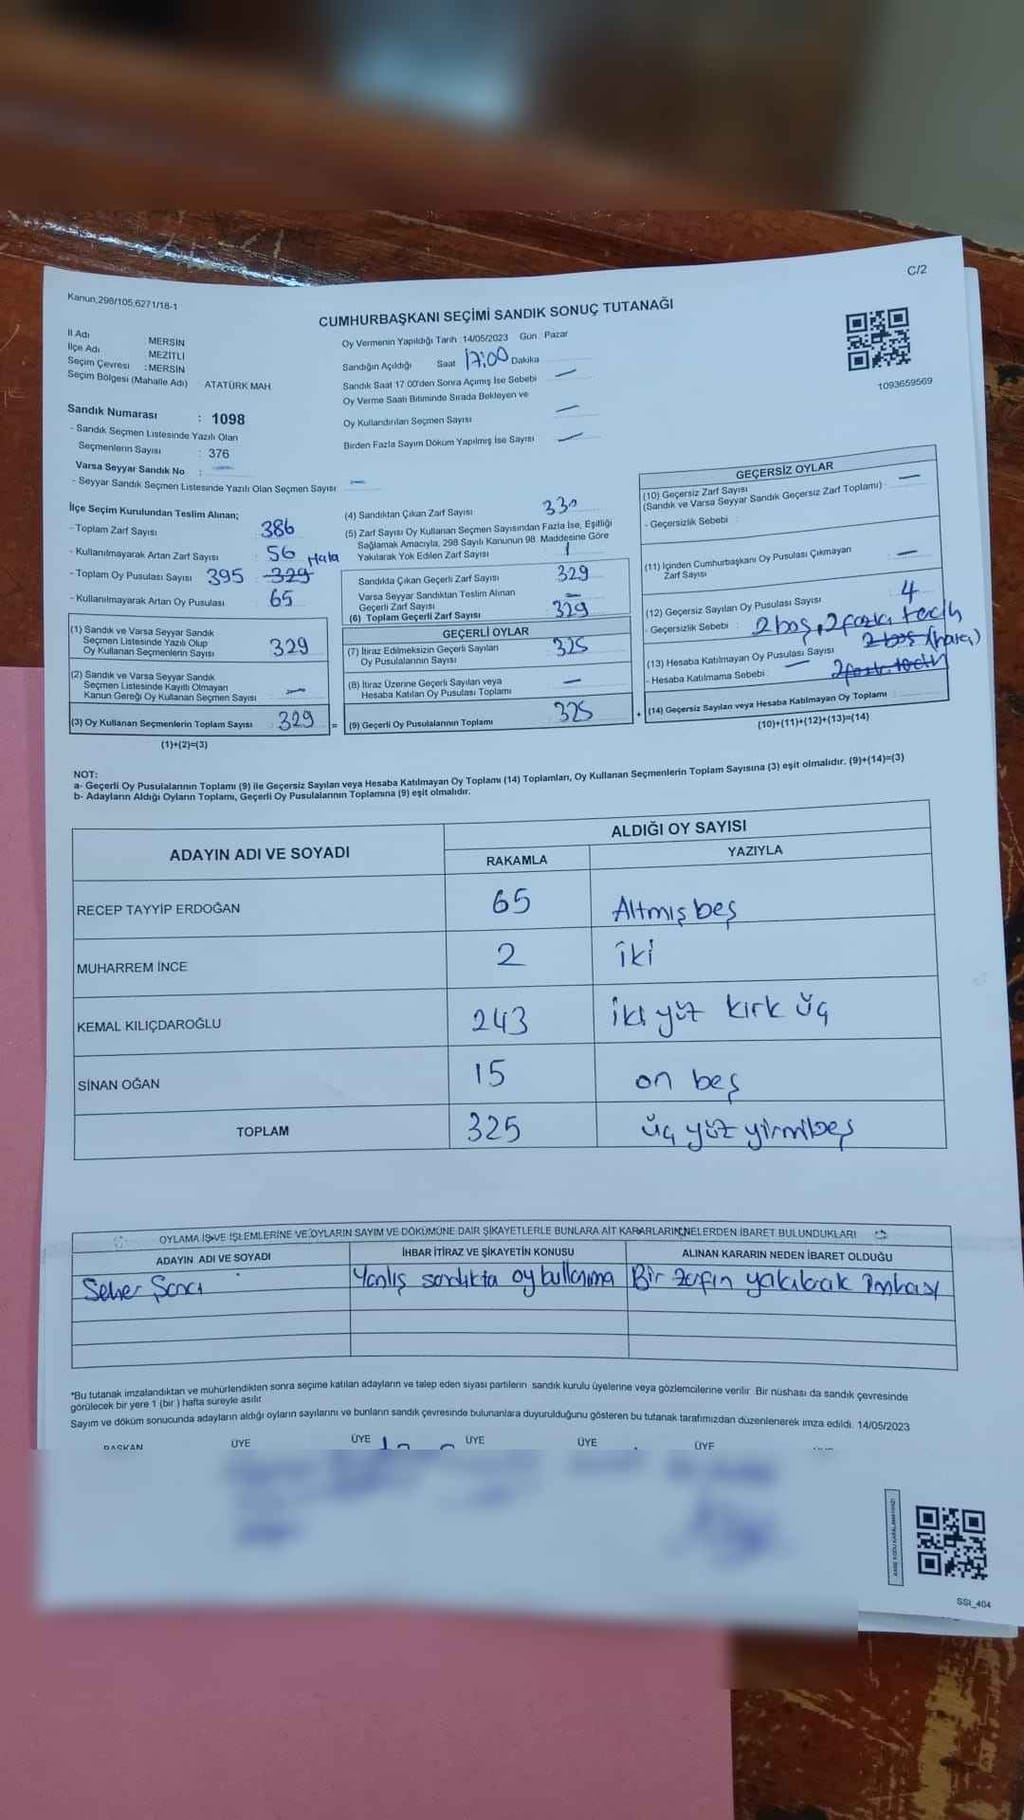 C/2
Kanun,298/105,6271/18-1
CUMHURBAŞKANI SEÇİMİ SANDIK SONUÇ TUTANAĞI
İl Adı MERSİN
İlçe Adı MEZİTLİ
Seçim Çevresi : MERSİN
Seçim Bölgesi (Mahalle Adı) ATATÜRK MAH.
Sandık Numarası : 1098
- Sandık Seçmen Listesinde Yazılı Olan
Seçmenlerin Sayısı : 376
Varsa Seyyar Sandık No : —
- Seyyar Sandık Seçmen Listesinde Yazılı Olan Seçmen Sayısı —
Oy Vermenin Yapıldığı Tarih 14/05/2023 Gün : Pazar
Sandığın Açıldığı Saat 17:00 Dakika
Sandık Saat 17:00'den Sonra Açımış İse Sebebi —
Oy Verme Saati Bitiminde Sırada Bekleyen ve
Oy Kullandırılan Seçmen Sayısı —
Birden Fazla Sayım Döküm Yapılmış İse Sayısı —
1093659569
İlçe Seçim Kurulundan Teslim Alınan;
- Toplam Zarf Sayısı 386
- Kullanılmayarak Artan Zarf Sayısı 56 Hata
- Toplam Oy Pusulası Sayısı 395 329
- Kullanılmayarak Artan Oy Pusulası 65
(1) Sandık ve Varsa Seyyar Sandık
Seçmen Listesinde Yazılı Olup
Oy Kullanan Seçmenlerin Sayısı 329
(2) Sandık ve Varsa Seyyar Sandık
Seçmen Listesinde Kayıtlı Olmayan
Kanun Gereği Oy Kullanan Seçmen Sayısı —
(3) Oy Kullanan Seçmenlerin Toplam Sayısı 329 =
(1)+(2)=(3)
(4) Sandıktan Çıkan Zarf Sayısı 330
(5) Zarf Sayısı Oy Kullanan Seçmen Sayısından Fazla İse, Eşitliği
Sağlamak Amacıyla, 298 Sayılı Kanunun 98. Maddesine Göre
Yakılarak Yok Edilen Zarf Sayısı 1
Sandıkta Çıkan Geçerli Zarf Sayısı 329
Varsa Seyyar Sandıktan Teslim Alınan
Geçerli Zarf Sayısı —
(6) Toplam Geçerli Zarf Sayısı 329
GEÇERLİ OYLAR
(7) İtiraz Edilmeksizin Geçerli Sayılan
Oy Pusulalarının Sayısı 325
(8) İtiraz Üzerine Geçerli Sayılan veya
Hesaba Katılan Oy Pusulası Toplamı —
(9) Geçerli Oy Pusulalarının Toplamı 325 +
GEÇERSİZ OYLAR
(10) Geçersiz Zarf Sayısı
(Sandık ve Varsa Seyyar Sandık Geçersiz Zarf Toplamı) : —
- Geçersizlik Sebebi :
(11) İçinden Cumhurbaşkanı Oy Pusulası Çıkmayan
Zarf Sayısı —
(12) Geçersiz Sayılan Oy Pusulası Sayısı 4
- Geçersizlik Sebebi : 2 boş, 2 fazla tercih
2 boş (hata)
(13) Hesaba Katılmayan Oy Pusulası Sayısı —
- Hesaba Katılmama Sebebi : 2 fazla tercih
(14) Geçersiz Sayılan veya Hesaba Katılmayan Oy Toplamı
(10)+(11)+(12)+(13)=(14)
NOT:
a- Geçerli Oy Pusulalarının Toplamı (9) ile Geçersiz Sayılan veya Hesaba Katılmayan Oy Toplamı (14) Toplamları, Oy Kullanan Seçmenlerin Toplam Sayısına (3) eşit olmalıdır. (9)+(14)=(3)
b- Adayların Aldığı Oyların Toplamı, Geçerli Oy Pusulalarının Toplamına (9) eşit olmalıdır.
ADAYIN ADI VE SOYADI ALDIĞI OY SAYISI
RAKAMLA YAZIYLA
RECEP TAYYİP ERDOĞAN 65 Altmış beş
MUHARREM İNCE 2 iki
KEMAL KILIÇDAROĞLU 243 iki yüz kırk üç
SİNAN OĞAN 15 on beş
TOPLAM 325 üç yüz yirmibeş
OYLAMA İŞ VE İŞLEMLERİNE VE OYLARIN SAYIM VE DÖKÜMÜNE DAİR ŞİKAYETLERLE BUNLARA AİT KARARLARIN NELERDEN İBARET BULUNDUKLARI
ADAYIN ADI VE SOYADI İHBAR İTİRAZ VE ŞİKAYETİN KONUSU ALINAN KARARIN NEDEN İBARET OLDUĞU
Seher Yanlış sandıkta oy kullanma Bir zarfın yakılarak imhası
*Bu tutanak imzalandıktan ve mühürlendikten sonra seçime katılan adayların ve talep eden siyasi partilerin sandık kurulu üyelerine veya gözlemcilerine verilir. Bir nüshası da sandık çevresinde
görülecek bir yere 1 (bir ) hafta süreyle asılır.
Sayım ve döküm sonucunda adayların aldığı oyların sayılarını ve bunların sandık çevresinde bulunanlara duyurulduğunu gösteren bu tutanak tarafımızdan düzenlenerek imza edildi. 14/05/2023
BAŞKAN ÜYE ÜYE ÜYE ÜYE ÜYE
SSI_404